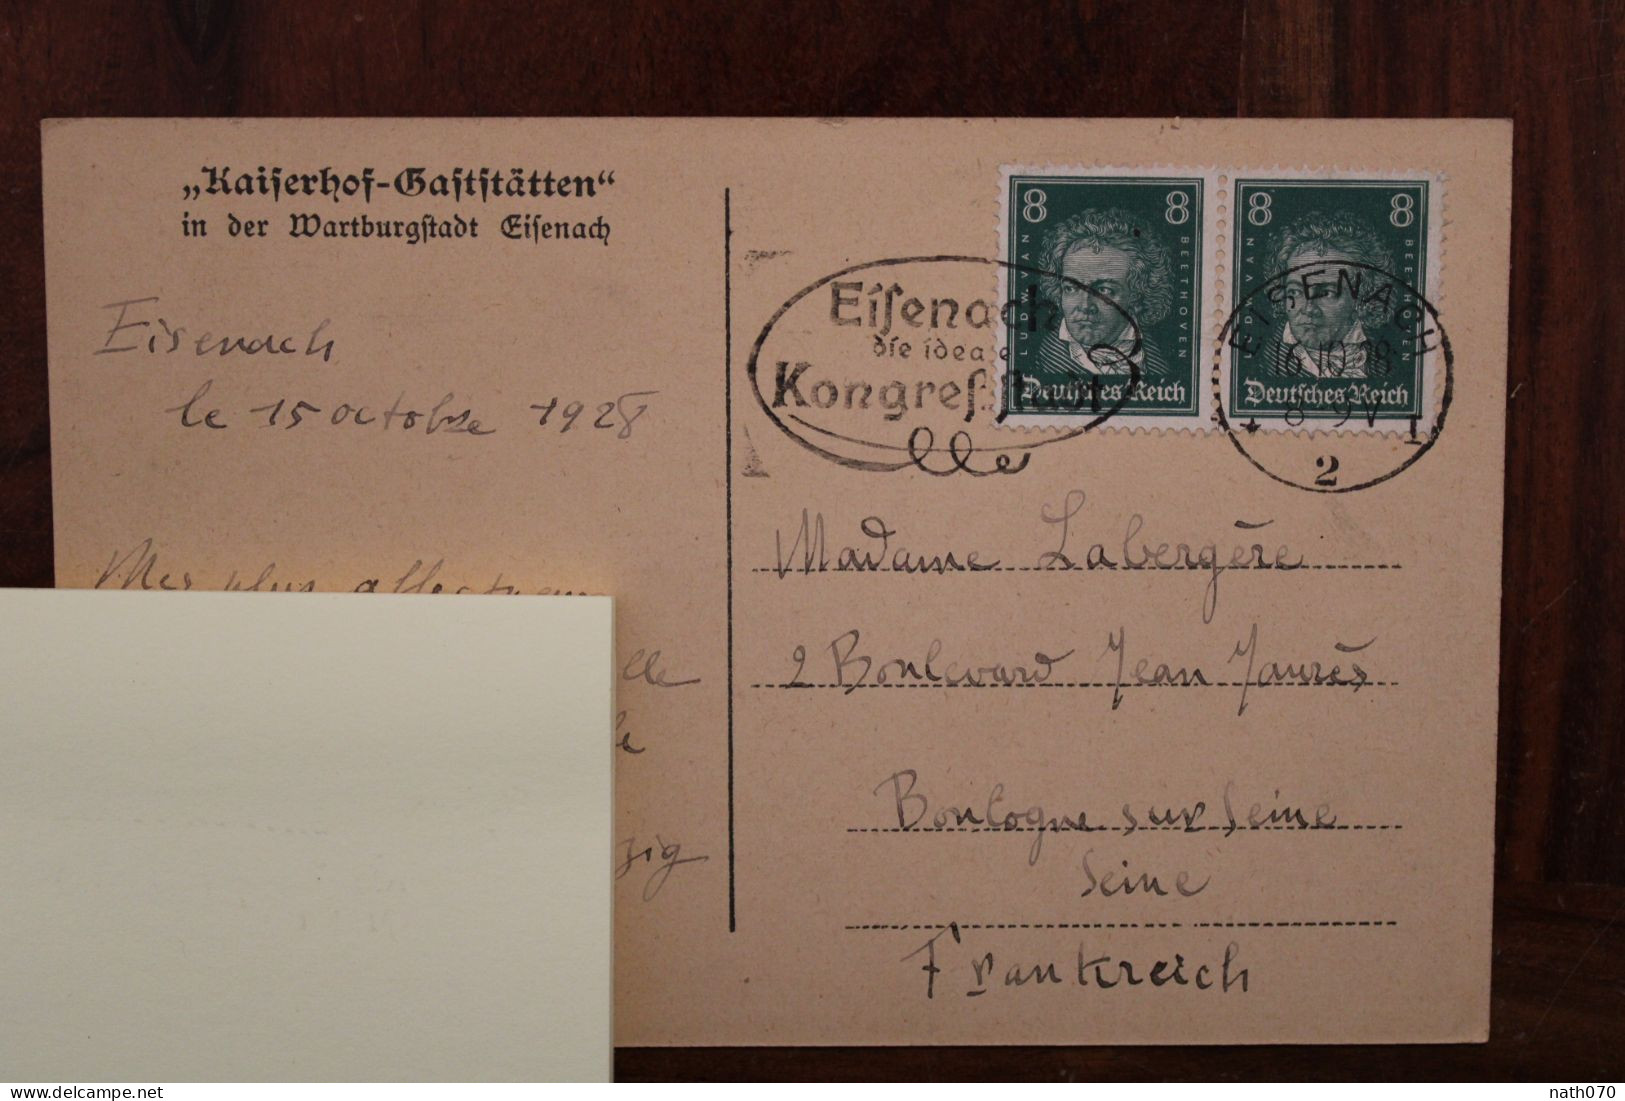 „Kaiserhof-Gaststätten“
in der Wartburgstadt Eisenach
Eisenach
le 15 octobre 1928
Mes plus affectueu
lle
zig
8 8
LUDWIG VAN BEETHOVEN
Deutsches Reich
8 8
LUDWIG VAN BEETHOVEN
Deutsches Reich
Eisenach
die ideale
Kongreßstadt
EISENACH
16.10.28
8-9V
* 1
2
Madame Labergère
2 Boulevard Jean Jaurès
Boulogne sur Seine
Seine
Frankreich
delcampe.net
nath070